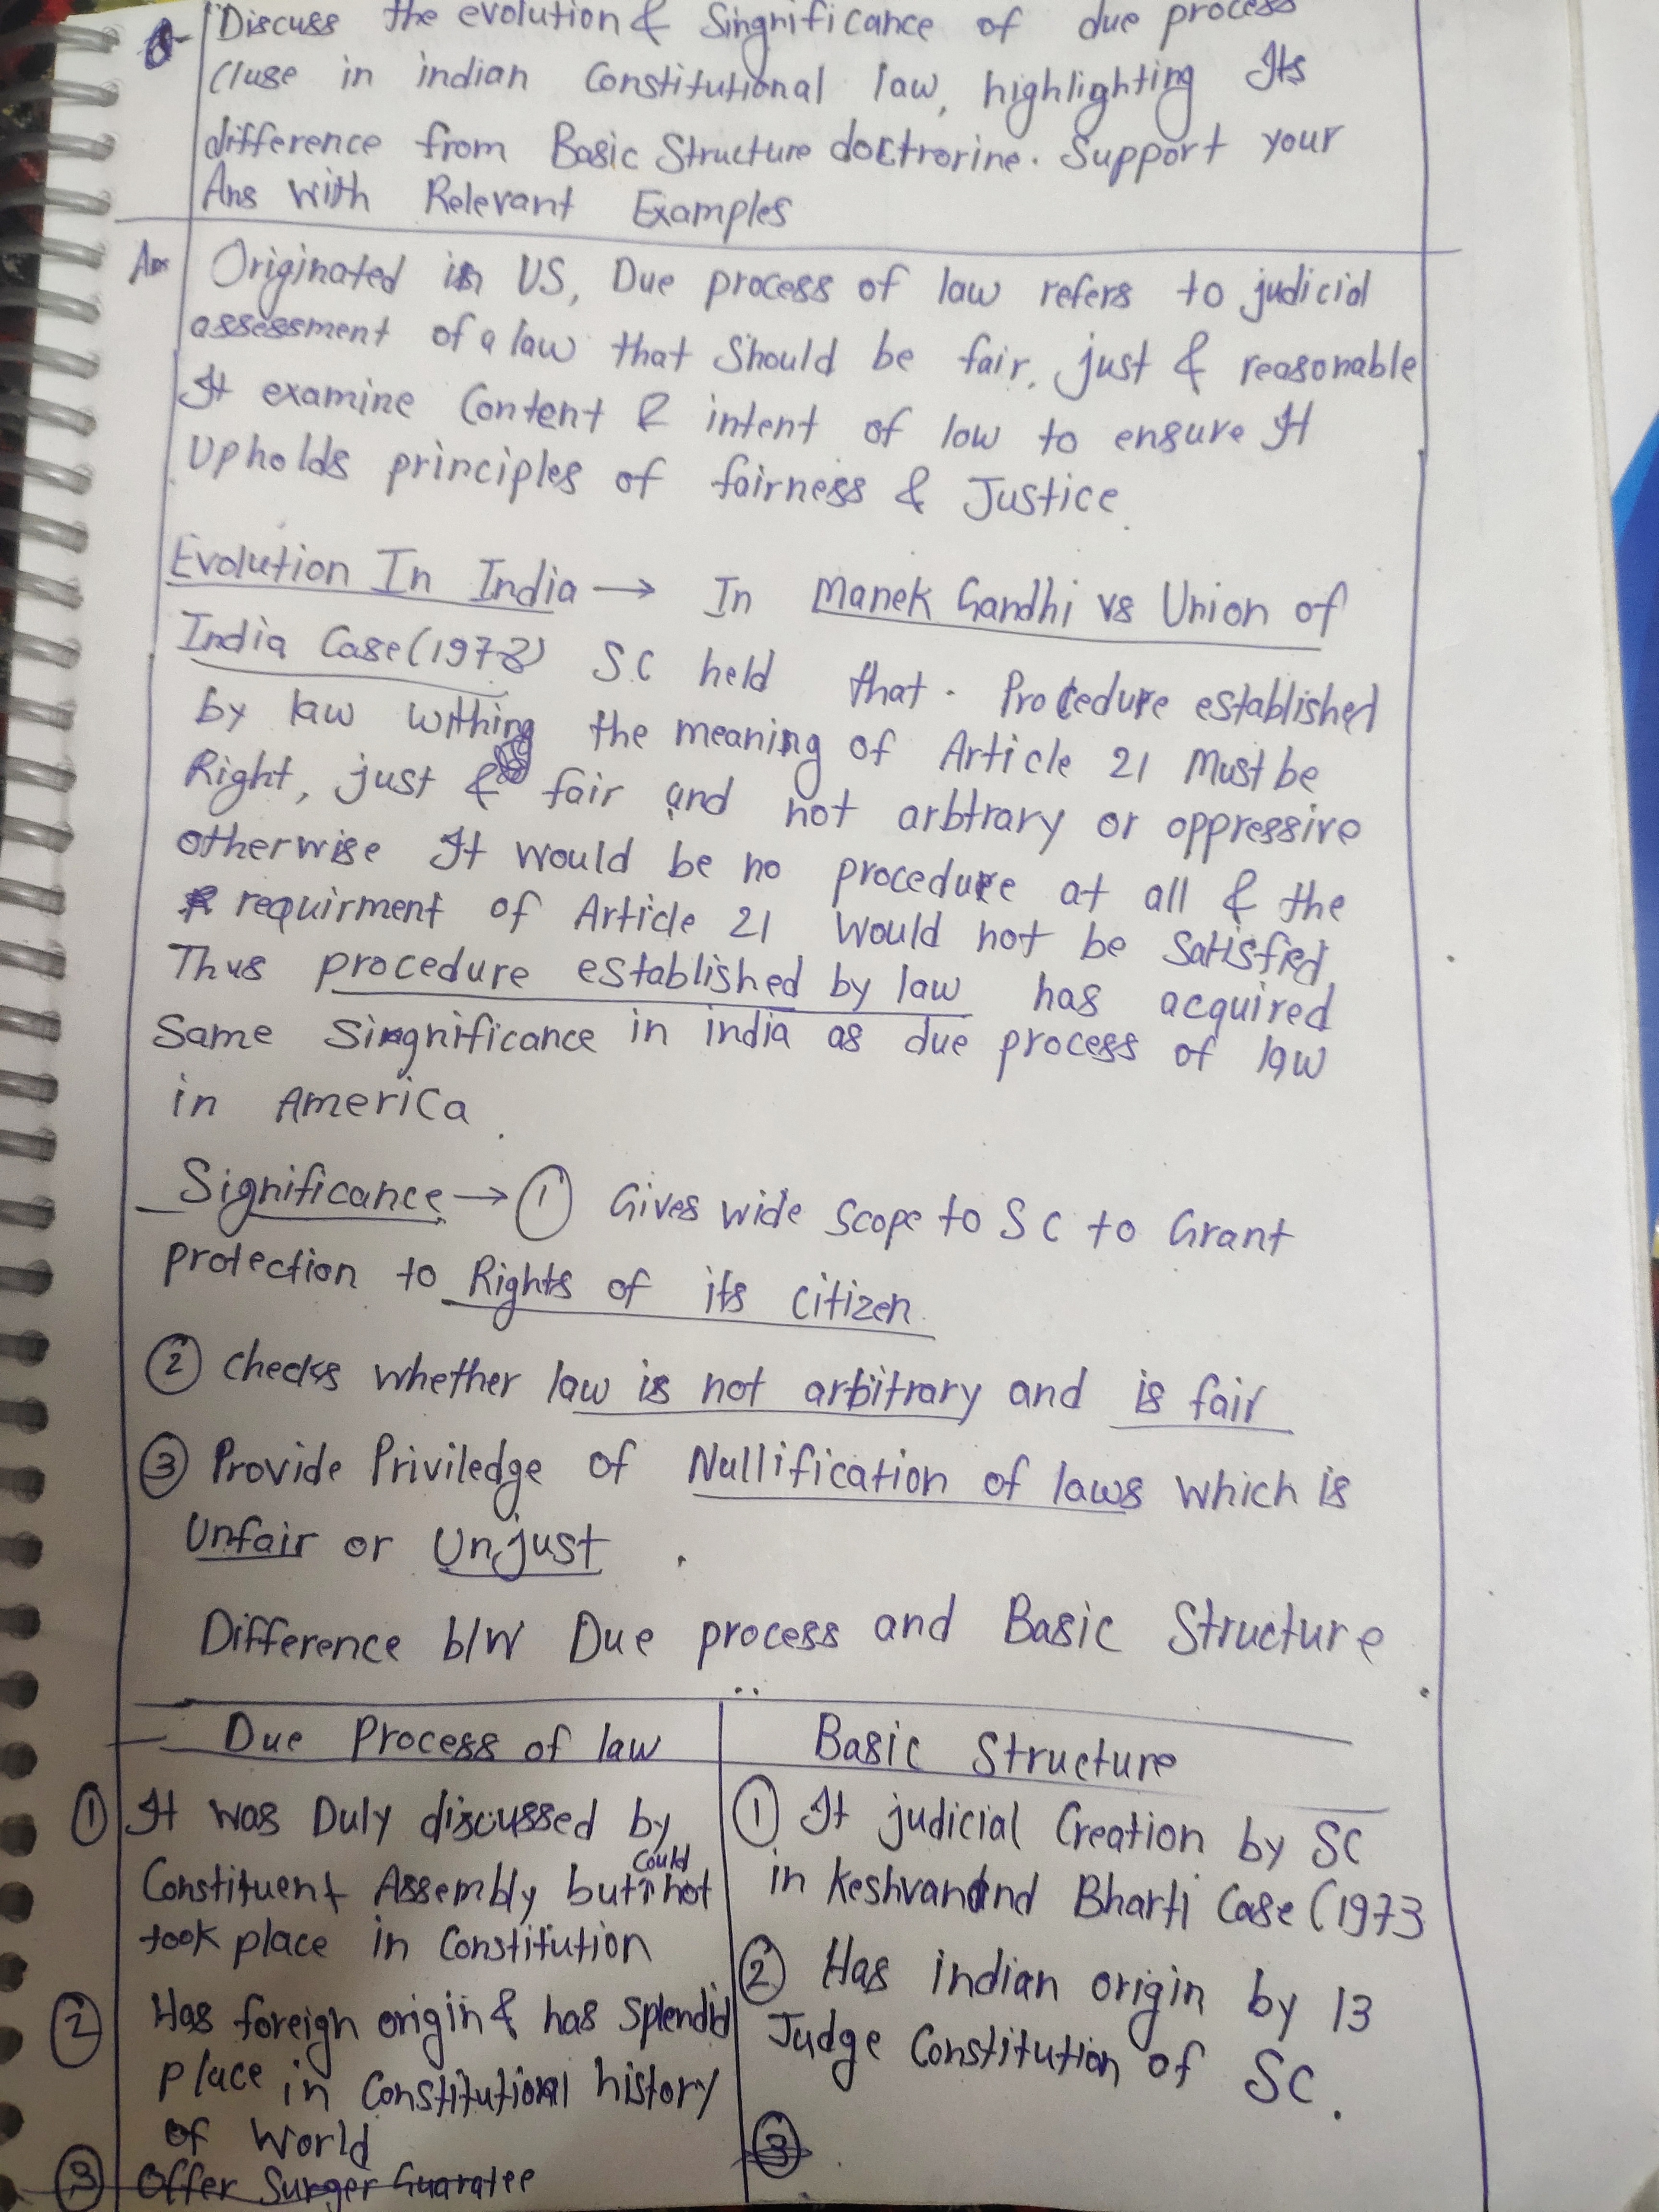 Q Discuss the evolution & Singnificance of due process
Cluse in indian Constitutional law, highlighting Its
difference from Basic Structure doctrorine. Support your
Ans with Relevant Examples
Ans Originated in US, Due process of law refers to judicial
assessment of a law that Should be fair, just & reasonable
It examine Content & intent of low to ensure It
Upholds principles of fairness & Justice.
Evolution In India → In Manek Gandhi vs Union of
India Case (1978) S.C held that. Procedure established
by law withing the meaning of Article 21 Must be
Right, just & fair and not arbtrary or oppressive
otherwise It would be no procedure at all & the
requirment of Article 21 Would not be Satisfied
Thus procedure established by law has acquired
Same Singnificance in india as due process of law
in America.
Significance → ① Gives wide Scope to S C to Grant
protection to Rights of its citizen.
② checks whether law is not arbitrary and is fair
③ Provide Priviledge of Nullification of laws which is
Unfair or Unjust.
Difference b/w Due process and Basic Structure
Due Process of law
① It was Duly discussed by
Constituent Assembly but could not
took place in Constitution
② Has foreign origin & has Splendid
place in Constitutional history
of World
③ Offer Surger Guaratee
Basic Structure
① It judicial Creation by SC
in Keshvanand Bharti Case (1973
② Has indian origin by 13
Judge Constitution of SC.
③